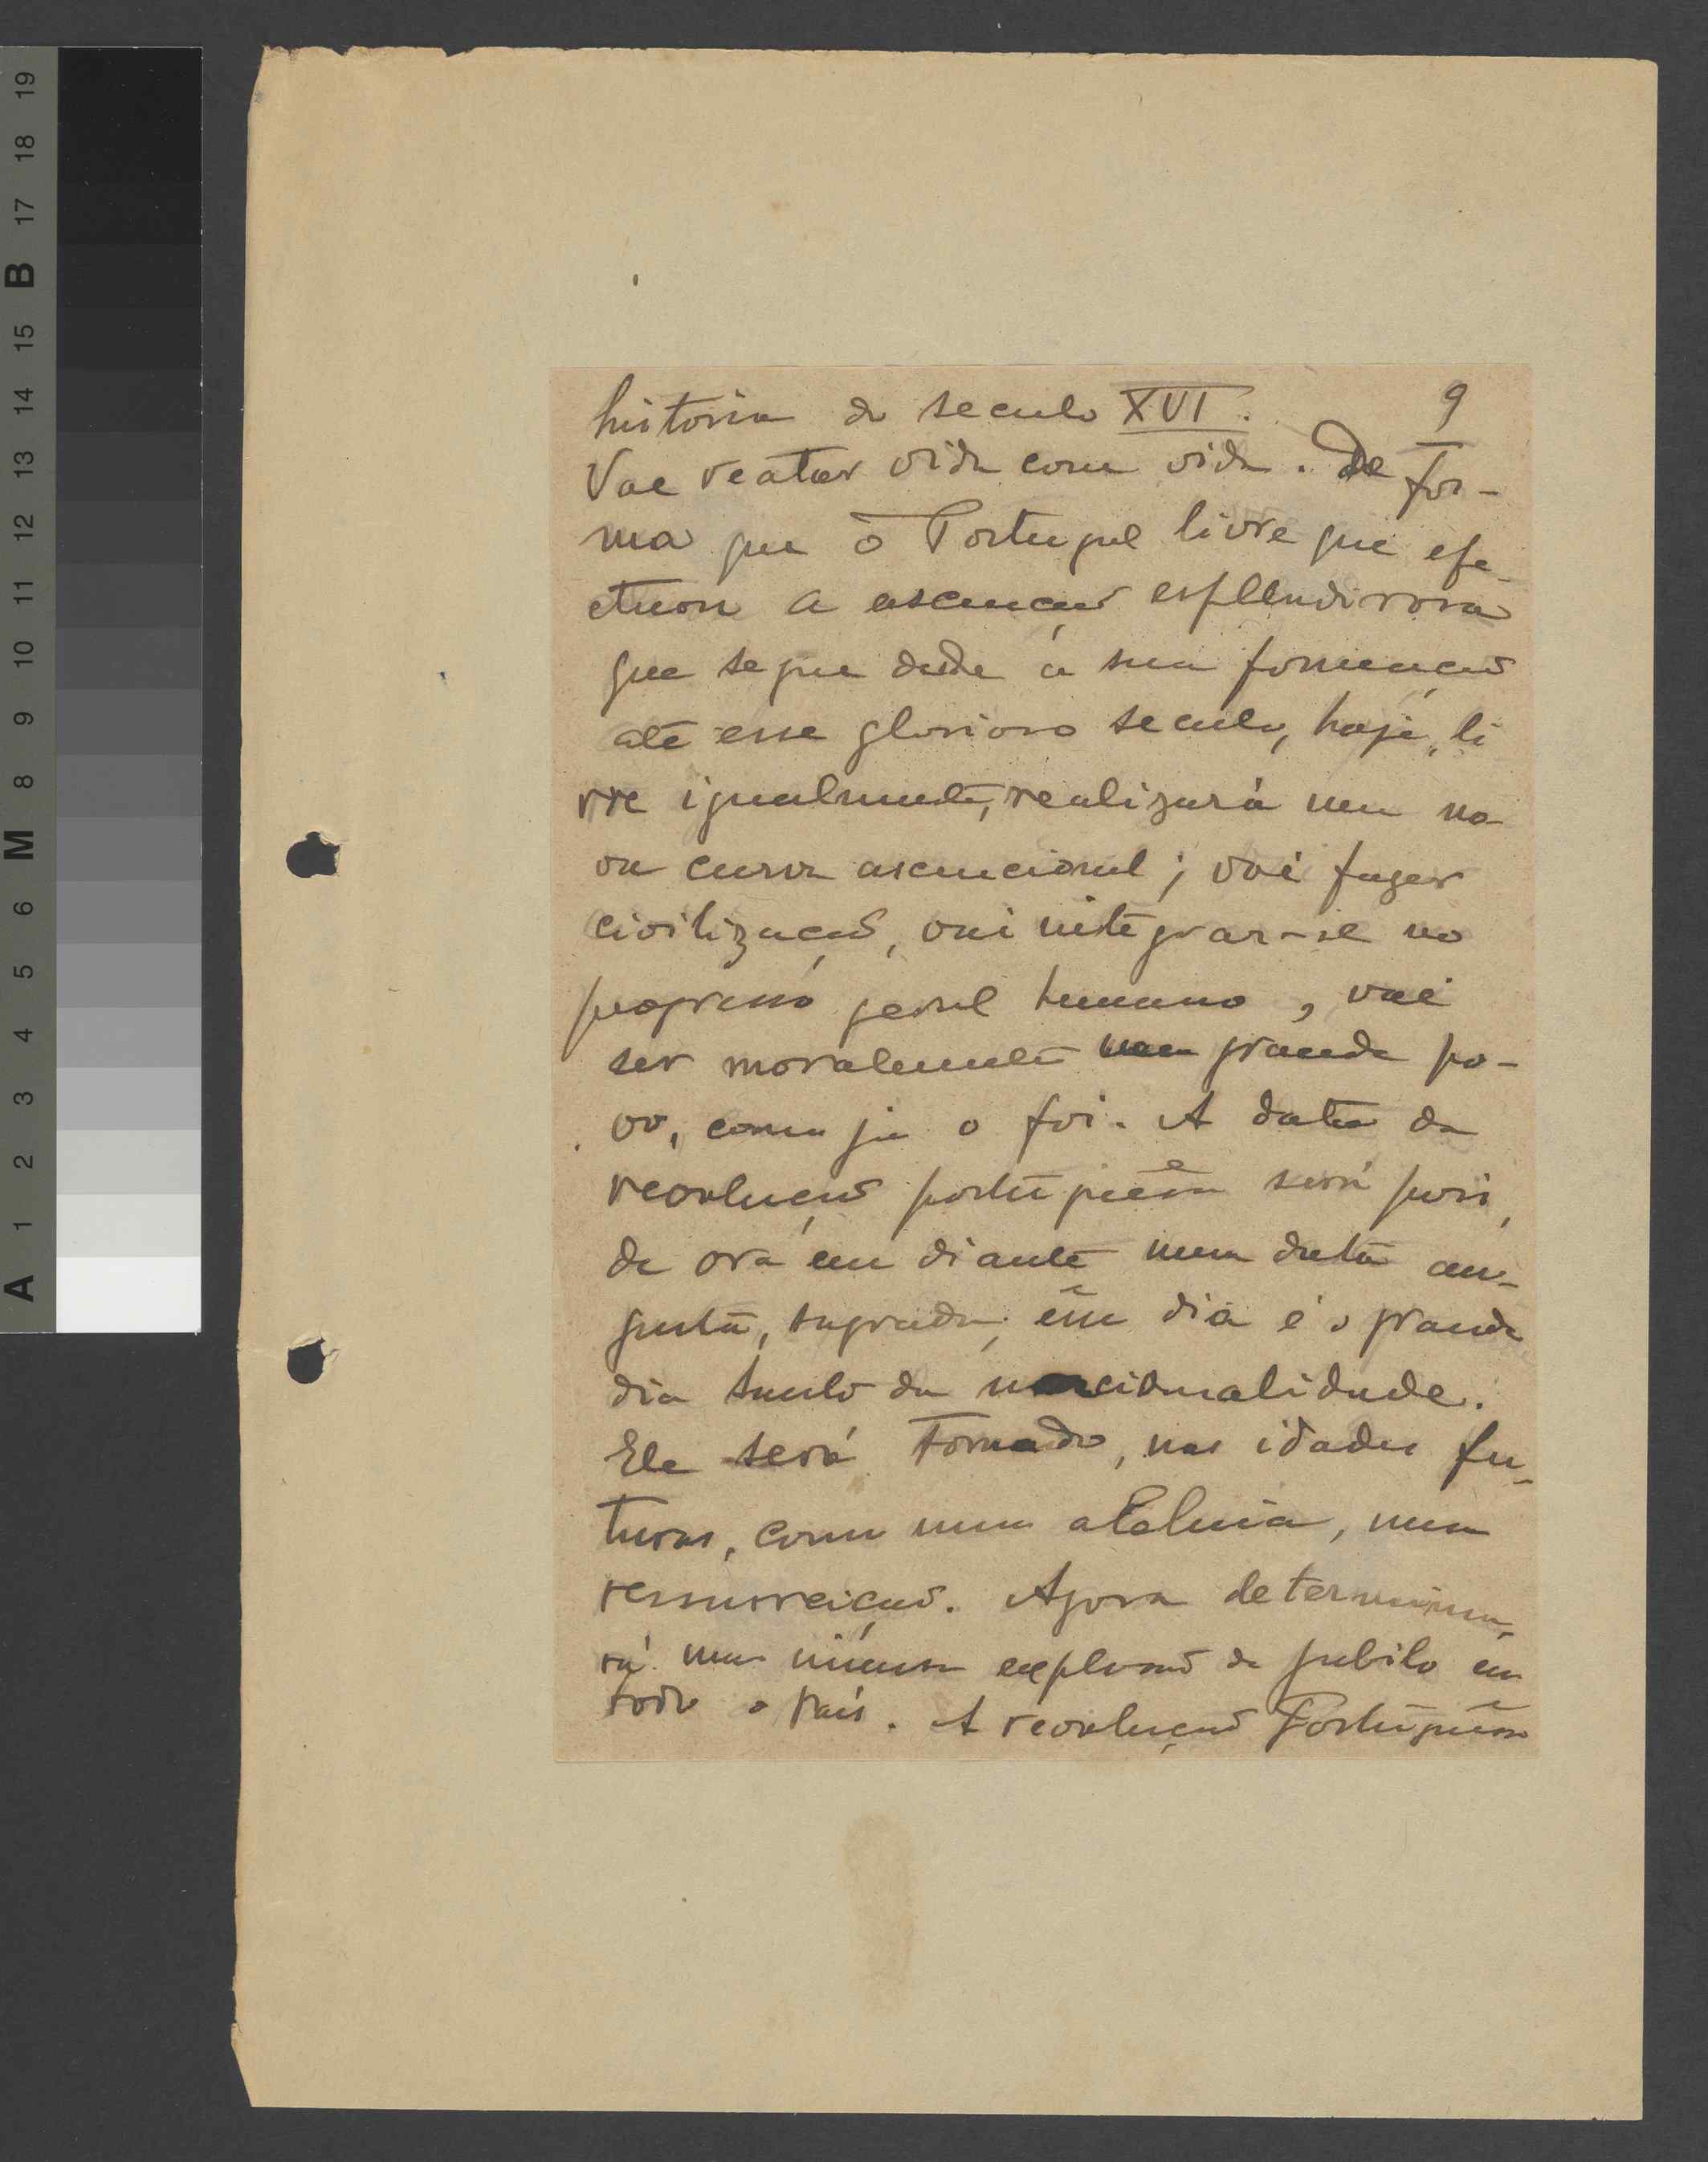 historia do seculo XVI. 9
Vae reatar vida com vida. De for-
ma que o Portugal livre que efe-
ctuou a ascenção esplendorosa
que segue desde a sua formação
até esse glorioso seculo, hoje, li
vre igualmente, realizará uma no-
va curva ascencional; vai fazer
civilização, vai integrar-se no
progresso geral humano, vai
ser moralmente um grande po-
vo, como já o foi. A data da
revolução portuguêsa será pois,
de ora em diante uma data au-
gusta, sagrada; êsse dia é o grande
dia santo da nacionalidade.
Ele será tornado, nas idades fu-
turas, como uma aleluia, uma
ressurreição. Agora determina-
rá uma imensa explosão de jubilo em
todo o País. A revolução Portuguêsa